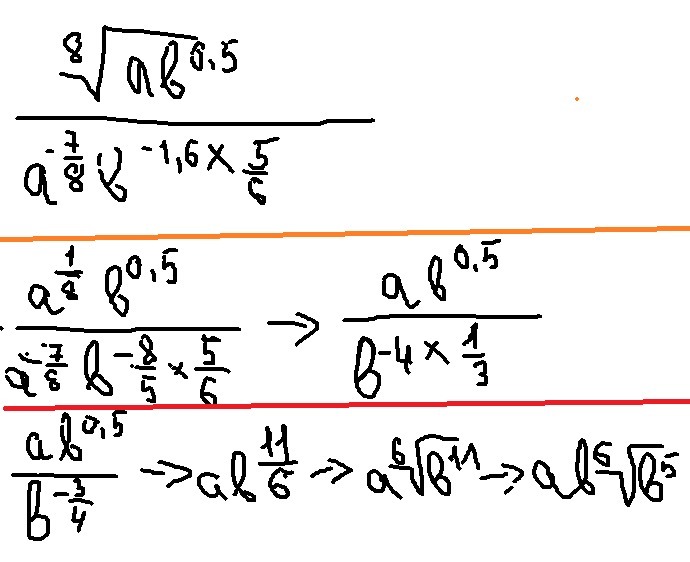 ⁸√ab^0,5 / a^-7/8 b^-1,6 × 5/6
a^1/8 b^0,5 / a^-7/8 b^-8/5 × 5/6 → ab^0,5 / b^-4 × 1/3
ab^0,5 / b^-3/4 → ab^11/6 → a ⁶√b^11 → ab ⁶√b^5